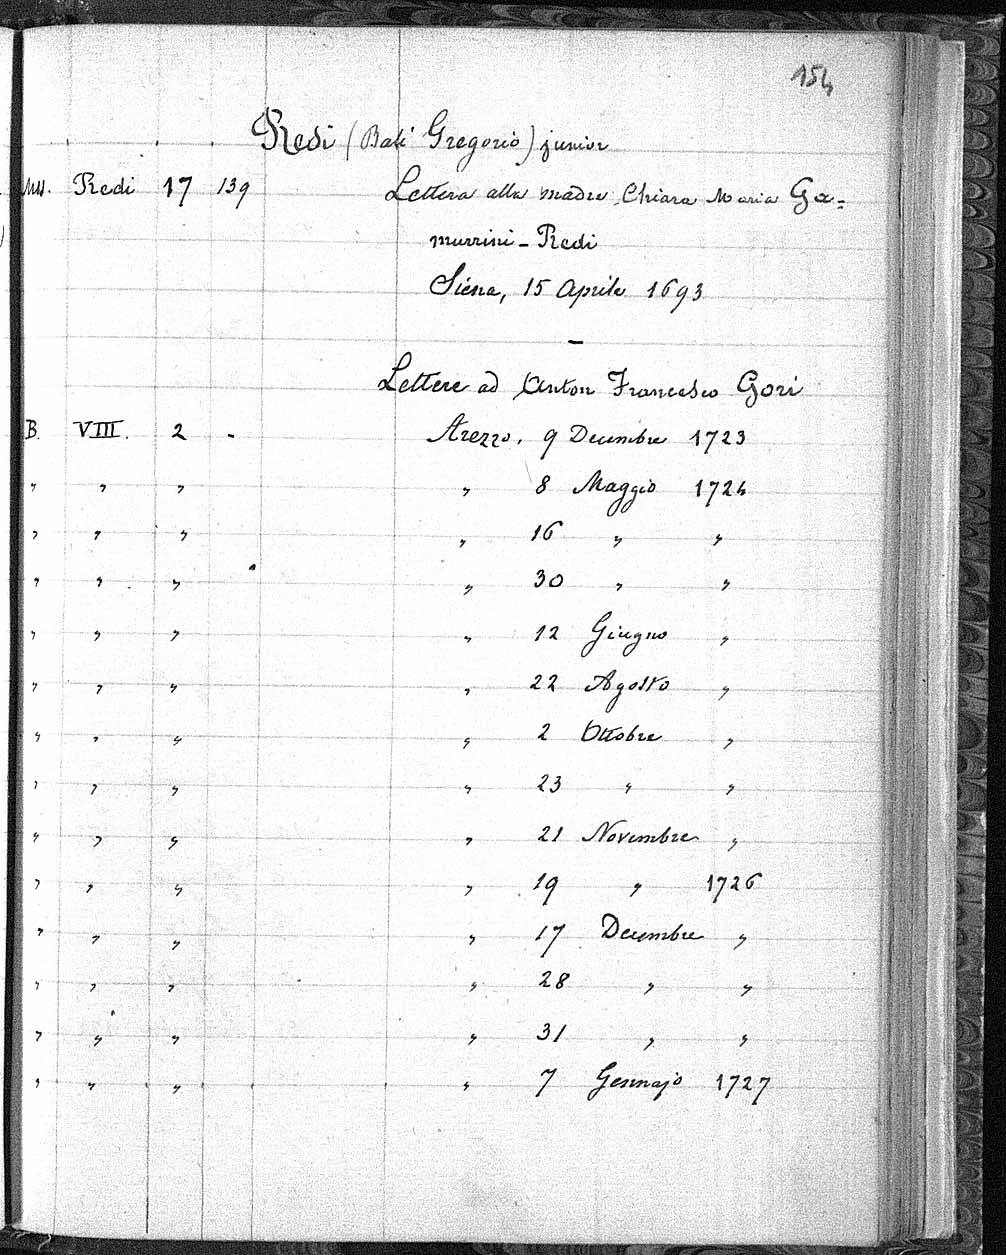 154
Redi (Balì Gregorio) junior
Mss. Redi 17 139 Lettera alla madre, Chiara Maria Ga=
murrini - Redi
Siena, 15 Aprile 1693
-
Lettere ad Anton Francesco Gori
B. VIII. 2 - Arezzo, 9 Decembre 1723
" " " " 8 Maggio 1724
" " " " 16 " "
" " " " 30 " "
" " " " 12 Giugno "
" " " " 22 Agosto "
" " " " 2 Ottobre "
" " " " 23 " "
" " " " 21 Novembre "
" " " " 19 " 1726
" " " " 17 Decembre "
" " " " 28 " "
" " " " 31 " "
" " " " 7 Gennajo 1727